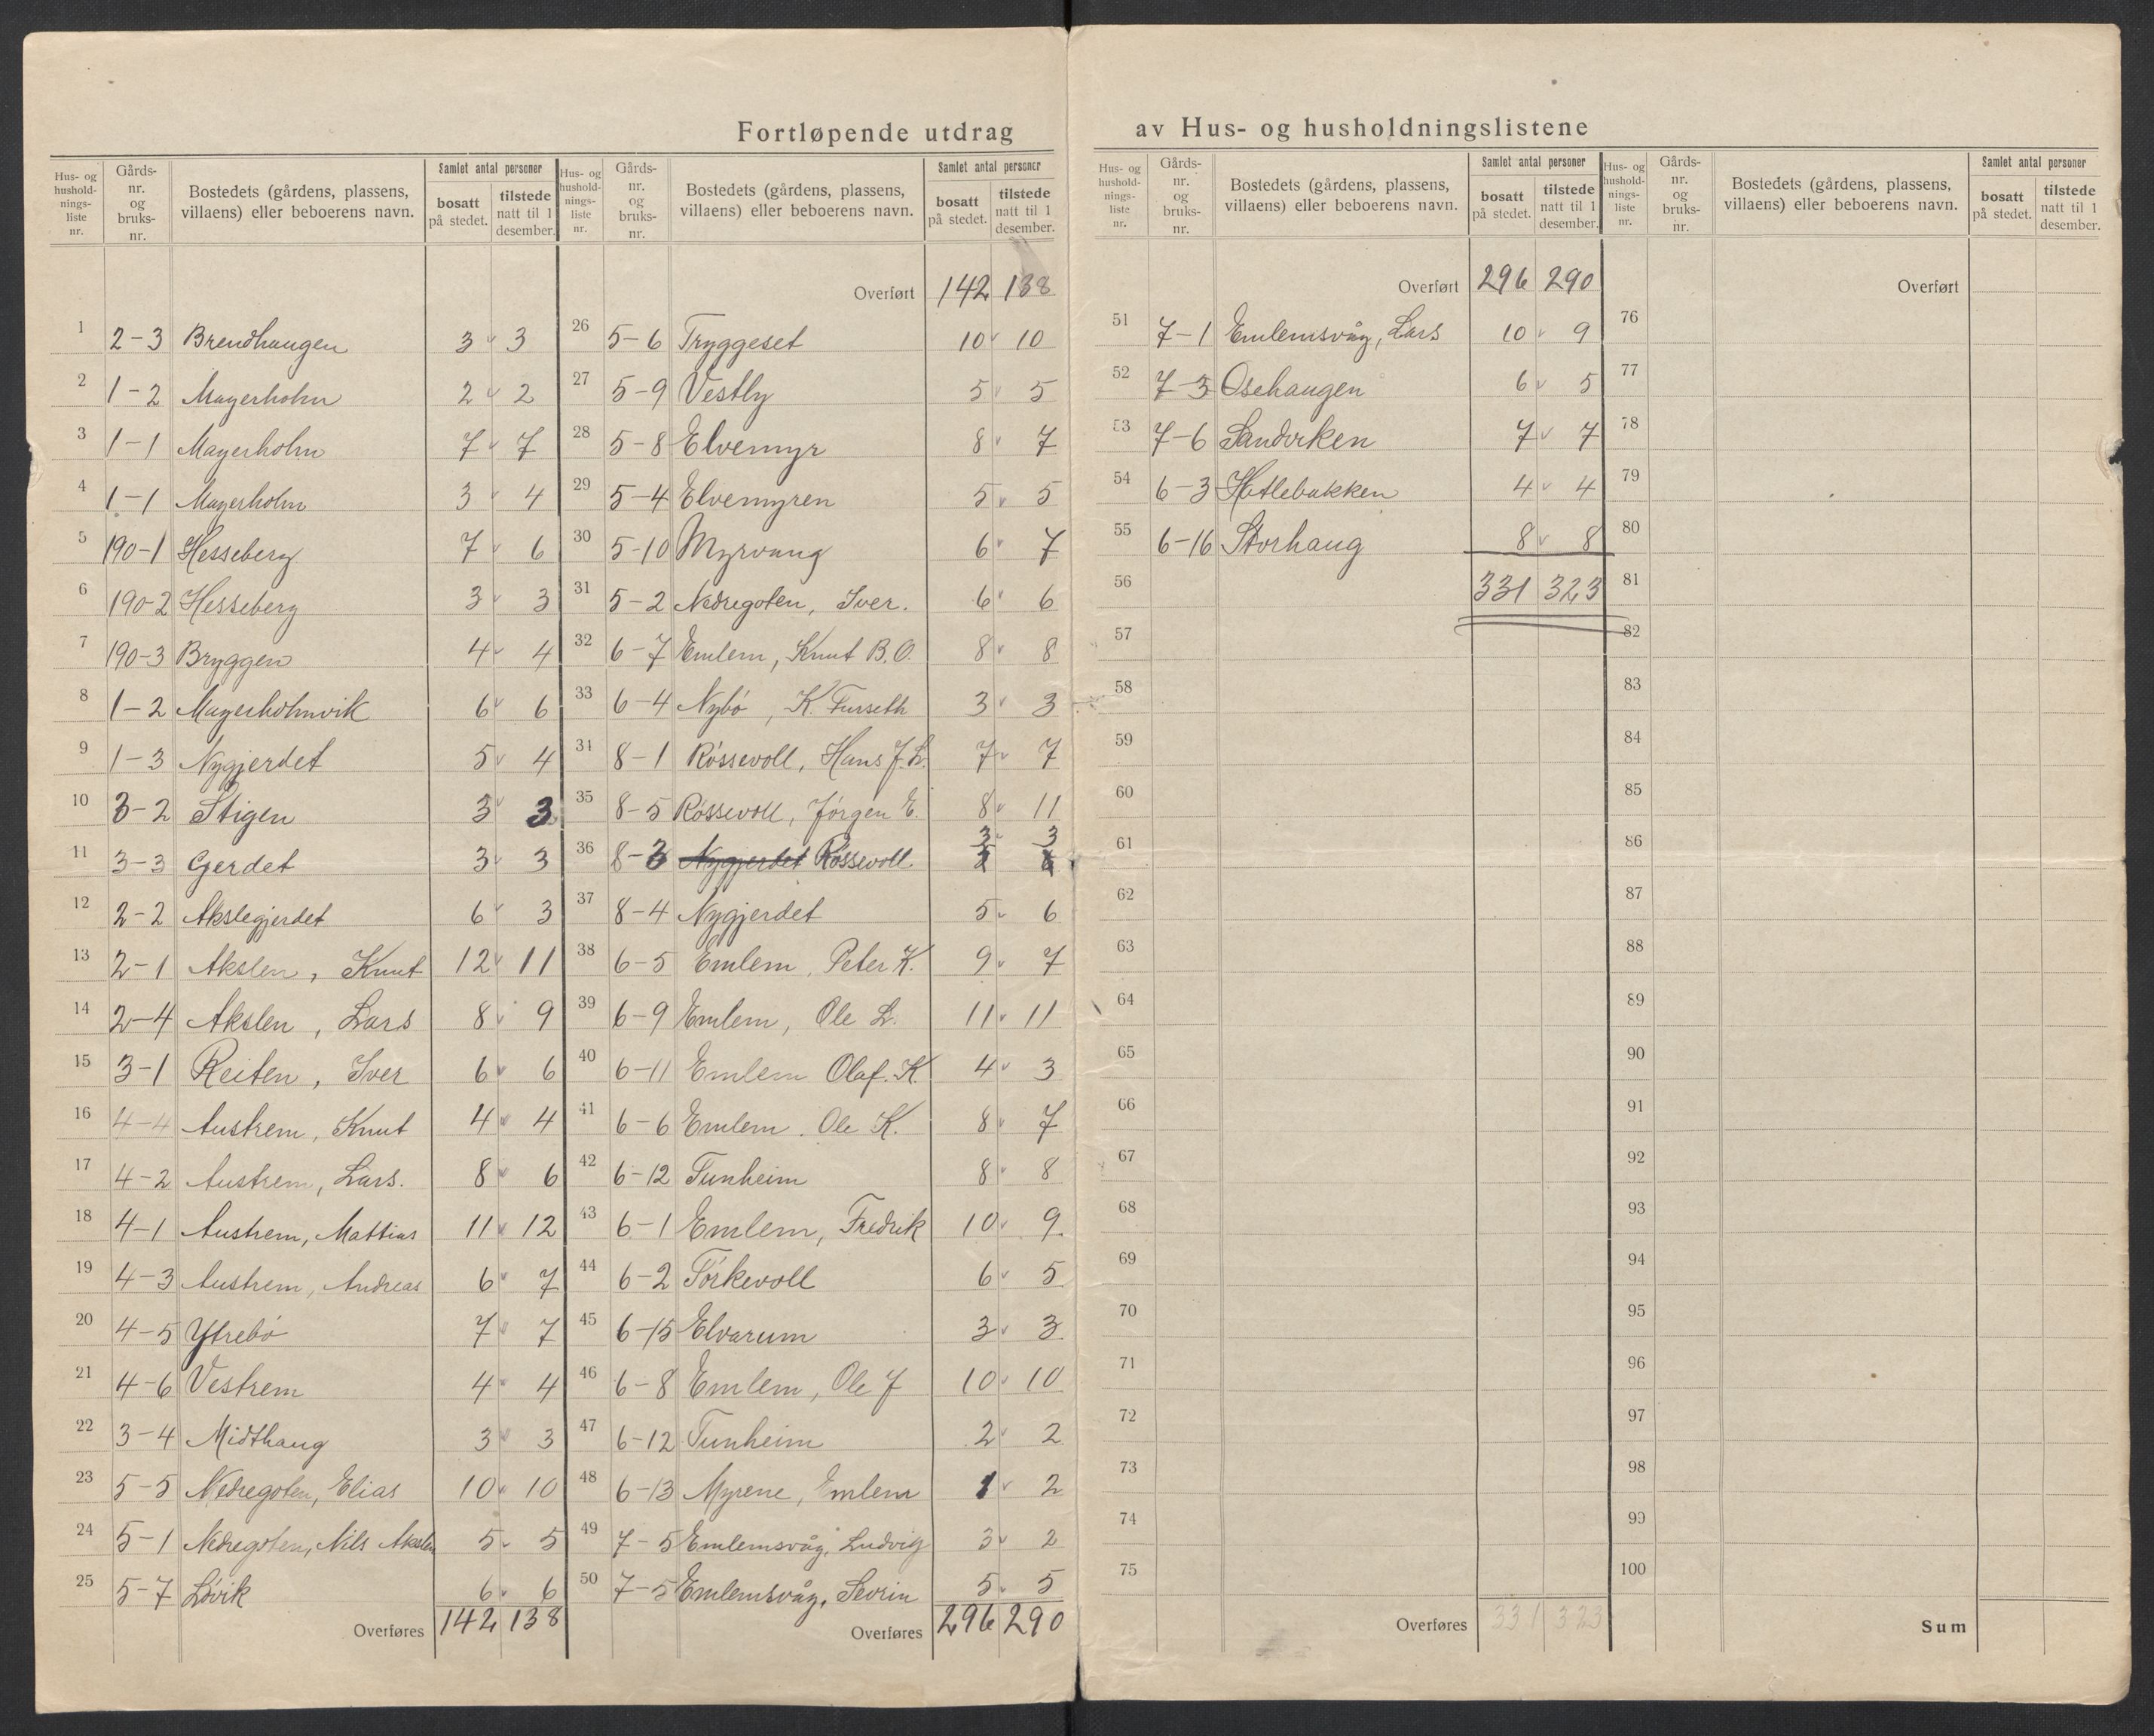 Fortløpende utdrag av Hus- og husholdningslistene
Hus- og hushold-nings-liste nr. Gårds-nr. og bruks-nr. Bostedets (gårdens, plassens, villaens) eller beboerens navn. Samlet antal personer bosatt på stedet. tilstede natt til 1 desember.
1 2-3 Brendhaugen 3 3
2 1-2 Magerholm 2 2
3 1-1 Magerholm 7 7
4 1-1 Magerholm 3 4
5 190-1 Hesseberg 7 6
6 190-2 Hesseberg 3 3
7 190-3 Bryggen 4 4
8 1-2 Magerholmvik 6 6
9 1-3 Nygjerdet 5 4
10 3-2 Stigen 3 3
11 3-3 Gerdet 3 3
12 2-2 Akslegjerdet 6 3
13 2-1 Akslen, Knut 12 11
14 2-4 Akslen, Lars 8 9
15 3-1 Reiten, Iver 6 6
16 4-4 Austrem, Knut 4 4
17 4-2 Austrem, Lars. 8 6
18 4-1 Austrem, Mattias 11 12
19 4-3 Austrem, Andreas 6 7
20 4-5 Ytrebø 7 7
21 4-6 Vestrem 4 4
22 3-4 Midthaug 3 3
23 5-5 Nedregoten, Elias 10 10
24 5-1 Nedregoten, Nils Akslen 5 5
25 5-7 Løvik 6 6
Overføres 142 138
Hus- og hushold-nings-liste nr. Gårds-nr. og bruks-nr. Bostedets (gårdens, plassens, villaens) eller beboerens navn. Samlet antal personer bosatt på stedet. tilstede natt til 1 desember.
Overført 142 138
26 5-6 Tryggeset 10 10
27 5-9 Vestly 5 5
28 5-8 Elvemyr 8 7
29 5-4 Elvemyren 5 5
30 5-10 Myrvang 6 7
31 5-2 Nedregoten, Iver. 6 6
32 6-7 Emlem, Knut B.O. 8 8
33 6-4 Nybø, K. Furseth 3 3
34 8-1 Røssevoll, Hans J.L. 7 7
35 8-5 Røssevoll, Jørgen E. 8 11
36 8-3 Nygjerdet Røssevoll. 3 3
37 8-4 Nygjerdet 5 6
38 6-5 Emlem, Peter K. 9 7
39 6-9 Emlem, Ole L. 11 11
40 6-11 Emlem Olaf. K. 4 3
41 6-6 Emlem. Ole K. 8 7
42 6-12 Tunheim 8 8
43 6-1 Emlem, Fredrik 10 9.
44 6-2 Tørkevoll 6 5
45 6-15 Elvarum 3 3
46 6-8 Emlem, Ole J 10 10
47 6-12 Tunheim 2 2
48 6-13 Myrene, Emlem 1 2
49 7-5 Emlemsvåg, Ludvig 3 2
50 7-5 Emlemsvåg, Sevrin 5 5
Overføres 296 290
Hus- og hushold-nings-liste nr. Gårds-nr. og bruks-nr. Bostedets (gårdens, plassens, villaens) eller beboerens navn. Samlet antal personer bosatt på stedet. tilstede natt til 1 desember.
Overført 296 290
51 7-1 Emlemsvåg, Lars 10 9
52 7-3 Osehaugen 6 5
53 7-6 Sandviken 7 7
54 6-3 Hatlebakken 4 4
55 6-16 Storhaug 8 8
56 331 323
57
58
59
60
61
62
63
64
65
66
67
68
69
70
71
72
73
74
75
Overføres 331 323
Hus- og hushold-nings-liste nr. Gårds-nr. og bruks-nr. Bostedets (gårdens, plassens, villaens) eller beboerens navn. Samlet antal personer bosatt på stedet. tilstede natt til 1 desember.
Overført
76
77
78
79
80
81
82
83
84
85
86
87
88
89
90
91
92
93
94
95
96
97
98
99
100
Sum